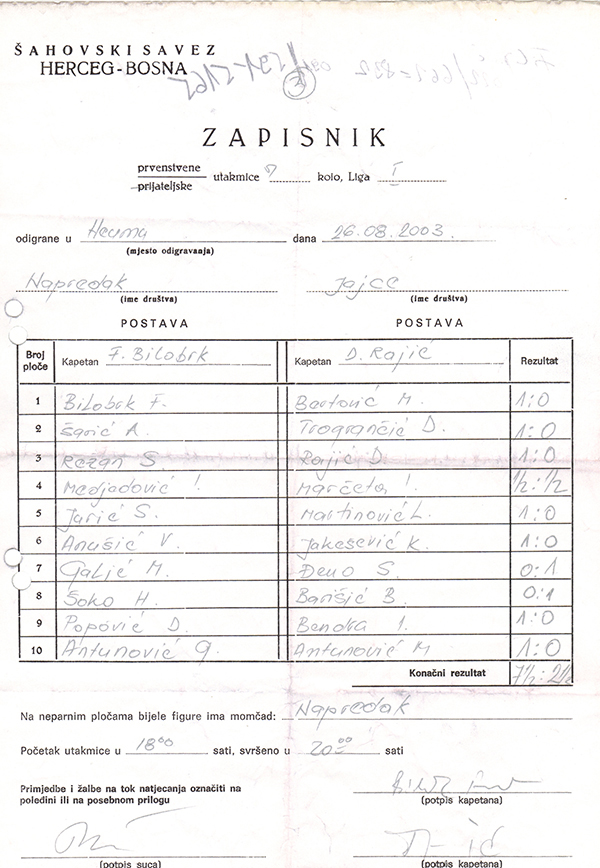 ŠAHOVSKI SAVEZ
HERCEG-BOSNA
ZAPISNIK
prvenstvene
prijateljske utakmice 7 kolo, Liga I
odigrane u Heuma dana 26.08.2003.
(mjesto odigravanja)
Napredak Jajce
(ime društva) (ime društva)
POSTAVA POSTAVA
Broj ploče Kapetan F. Bilobrk Kapetan D. Rajić Rezultat
1 Bilobrk F. Bartović M. 1:0
2 Šarić A. Trogrančić D. 1:0
3 Rezan S. Rajić D. 1:0
4 Medjadović I. Marčeta I. 1/2:1/2
5 Jurić S. Martinović L. 1:0
6 Anušić V. Jakešević K. 1:0
7 Galić M. Đeno S. 0:1
8 Šoko H. Barišić B. 0:1
9 Popović D. Bendra I. 1:0
10 Antunović G. Antunović M 1:0
Konačni rezultat 7 1/2 : 2 1/2
Na neparnim pločama bijele figure ima momčad: Napredak
Početak utakmice u 18⁰⁰ sati, svršeno u 20⁰⁰ sati
Primjedbe i žalbe na tok natjecanja označiti na
poledini ili na posebnom prilogu
(potpis kapetana)
(potpis suca) (potpis kapetana)